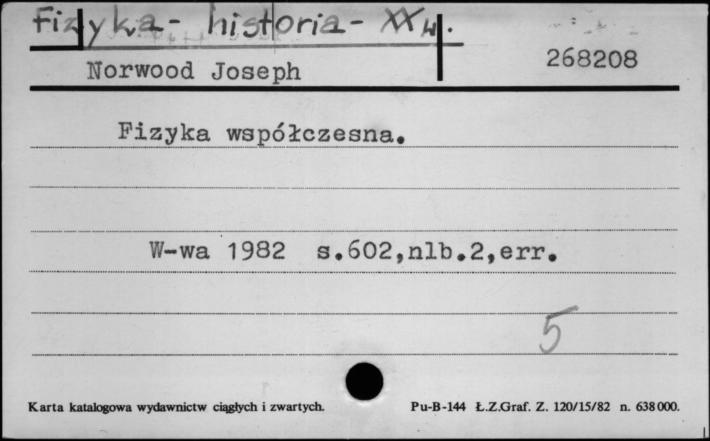 Fizyka - historia - XX w.
Norwood Joseph 268208
Fizyka współczesna.
W-wa 1982 s.602,nlb.2,err.
5
Karta katalogowa wydawnictw ciągłych i zwartych. Pu-B-144 Ł.Z.Graf. Z. 120/15/82 n. 638000.